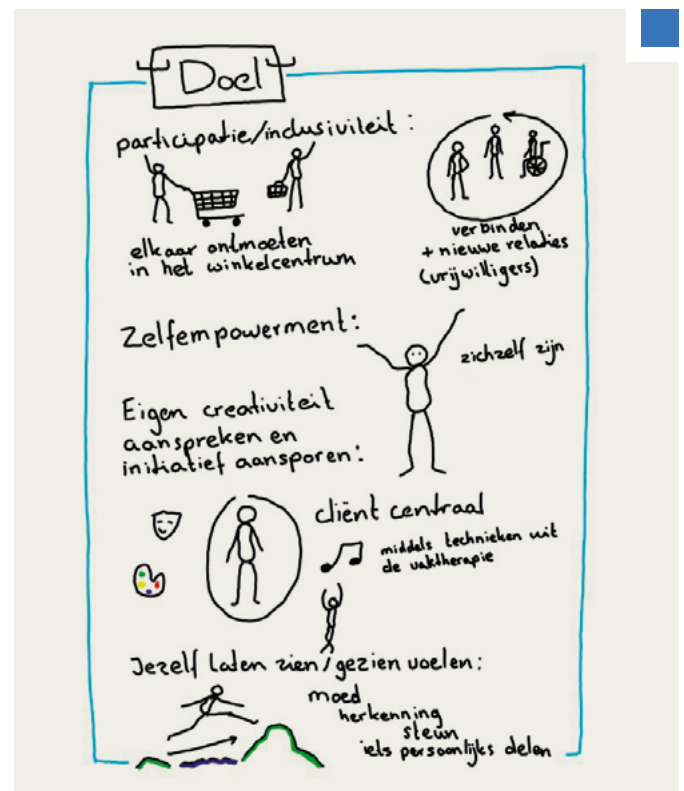 Doel
participatie/inclusiviteit:
elkaar ontmoeten
in het winkelcentrum
verbinden
+ nieuwe relaties
(vrijwilligers)
Zelfempowerment:
zichzelf zijn
Eigen creativiteit
aanspreken en
initiatief aansporen:
cliënt centraal
middels technieken uit
de vaktherapie
Jezelf laten zien/gezien voelen:
moed
herkenning
steun
iets persoonlijks delen